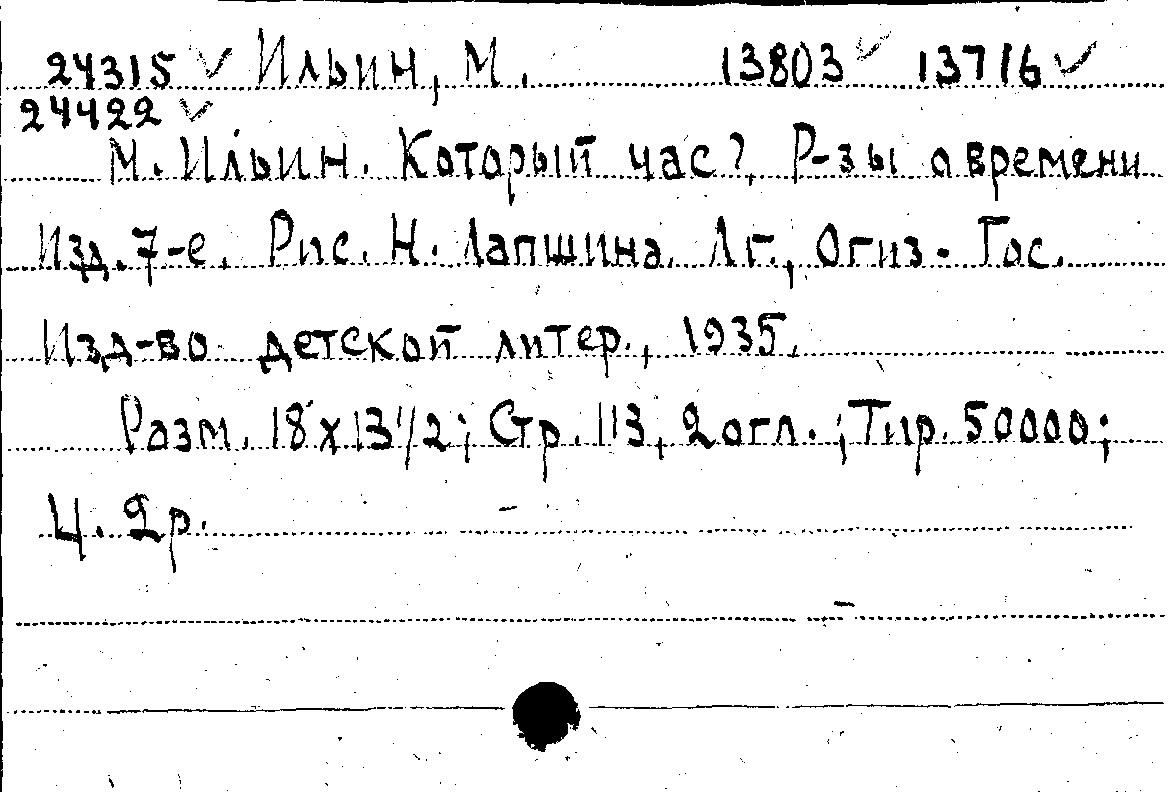 24315 ✓ Ильин, М. 13803 ✓ 13716 ✓
24422 ✓
М. Ильин. Который час? Р-зы о времени
Изд. 7-е. Рис. Н. Лапшина. Лг., Огиз - Гос.
Изд-во детской литер., 1935.
Разм. 18 х 13 1/2; Стр. 113, 2 огл.; Тир. 50000;
Ц. 2 р.